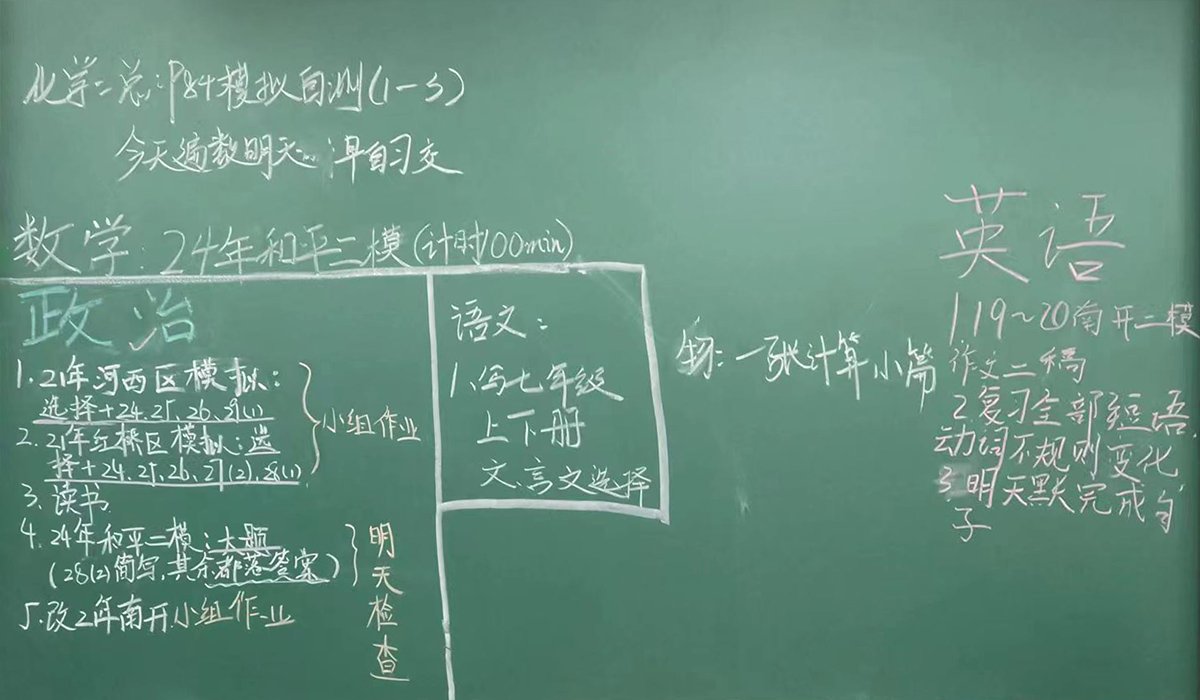 化学:二总:P84模拟自测(1-5)
今天遍数明天早自习交
数学:24年和平二模(计时100min)
政治
1.21年河西区模拟:
选择+24.25.26.29(1)
2.21年红桥区模拟:选
择+24.25.26.27(2).28(1)
小组作业
3.读书
4.24年和平二模:大题
(28(2)简写,其余都落答案)
5.改21年南开小组作业
明天检查
语文:
1.写七年级
上下册
文言文选择
物:一张计算小篇
英语
1 19~20南开二模
作文二稿
2复习全部短语,
动词不规则变化
3.明天默完成句
子